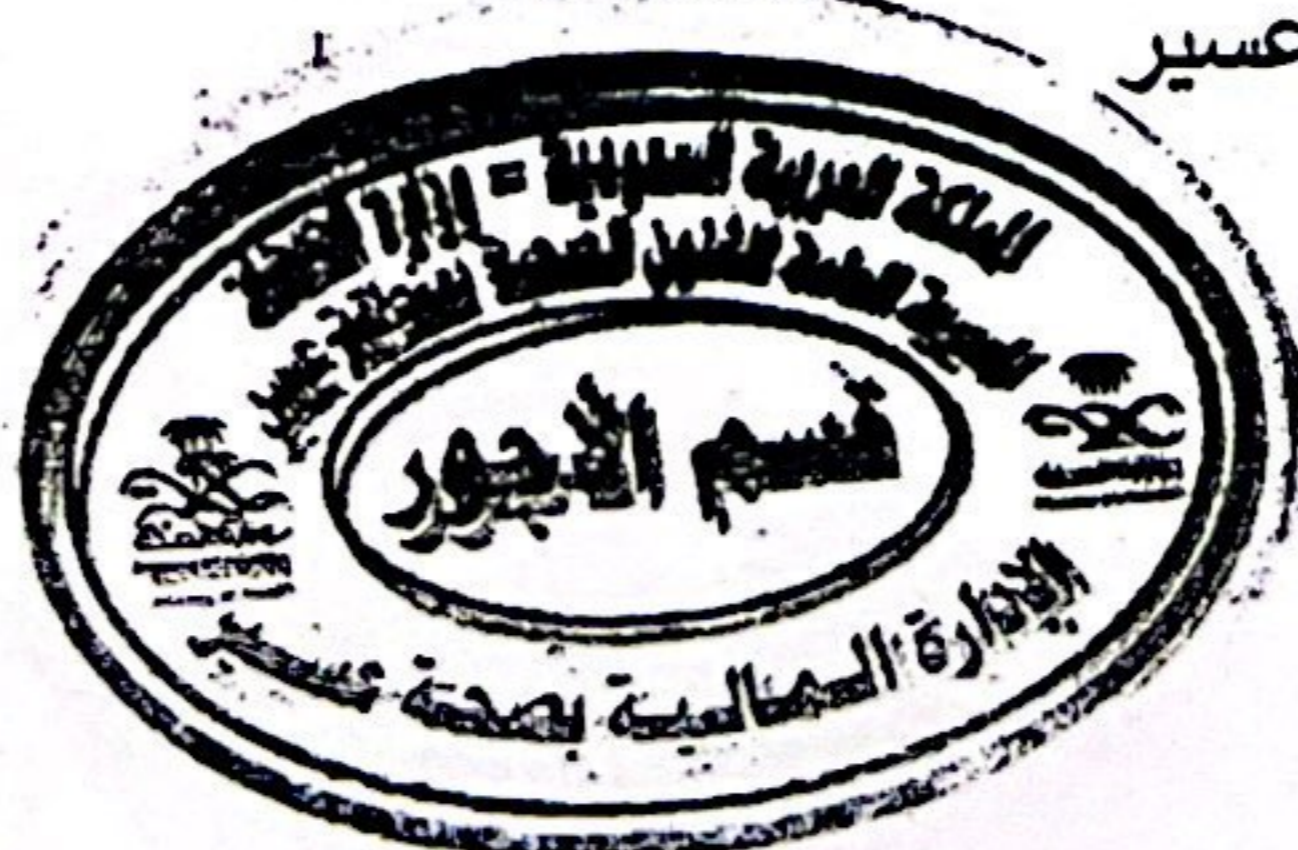 عسير
المملكة العربية السعودية - وزارة الصحة
المديرية العامة للشئون الصحية بمنطقة عسير
قسم الأجور
الإدارة المالية بصحة عسير